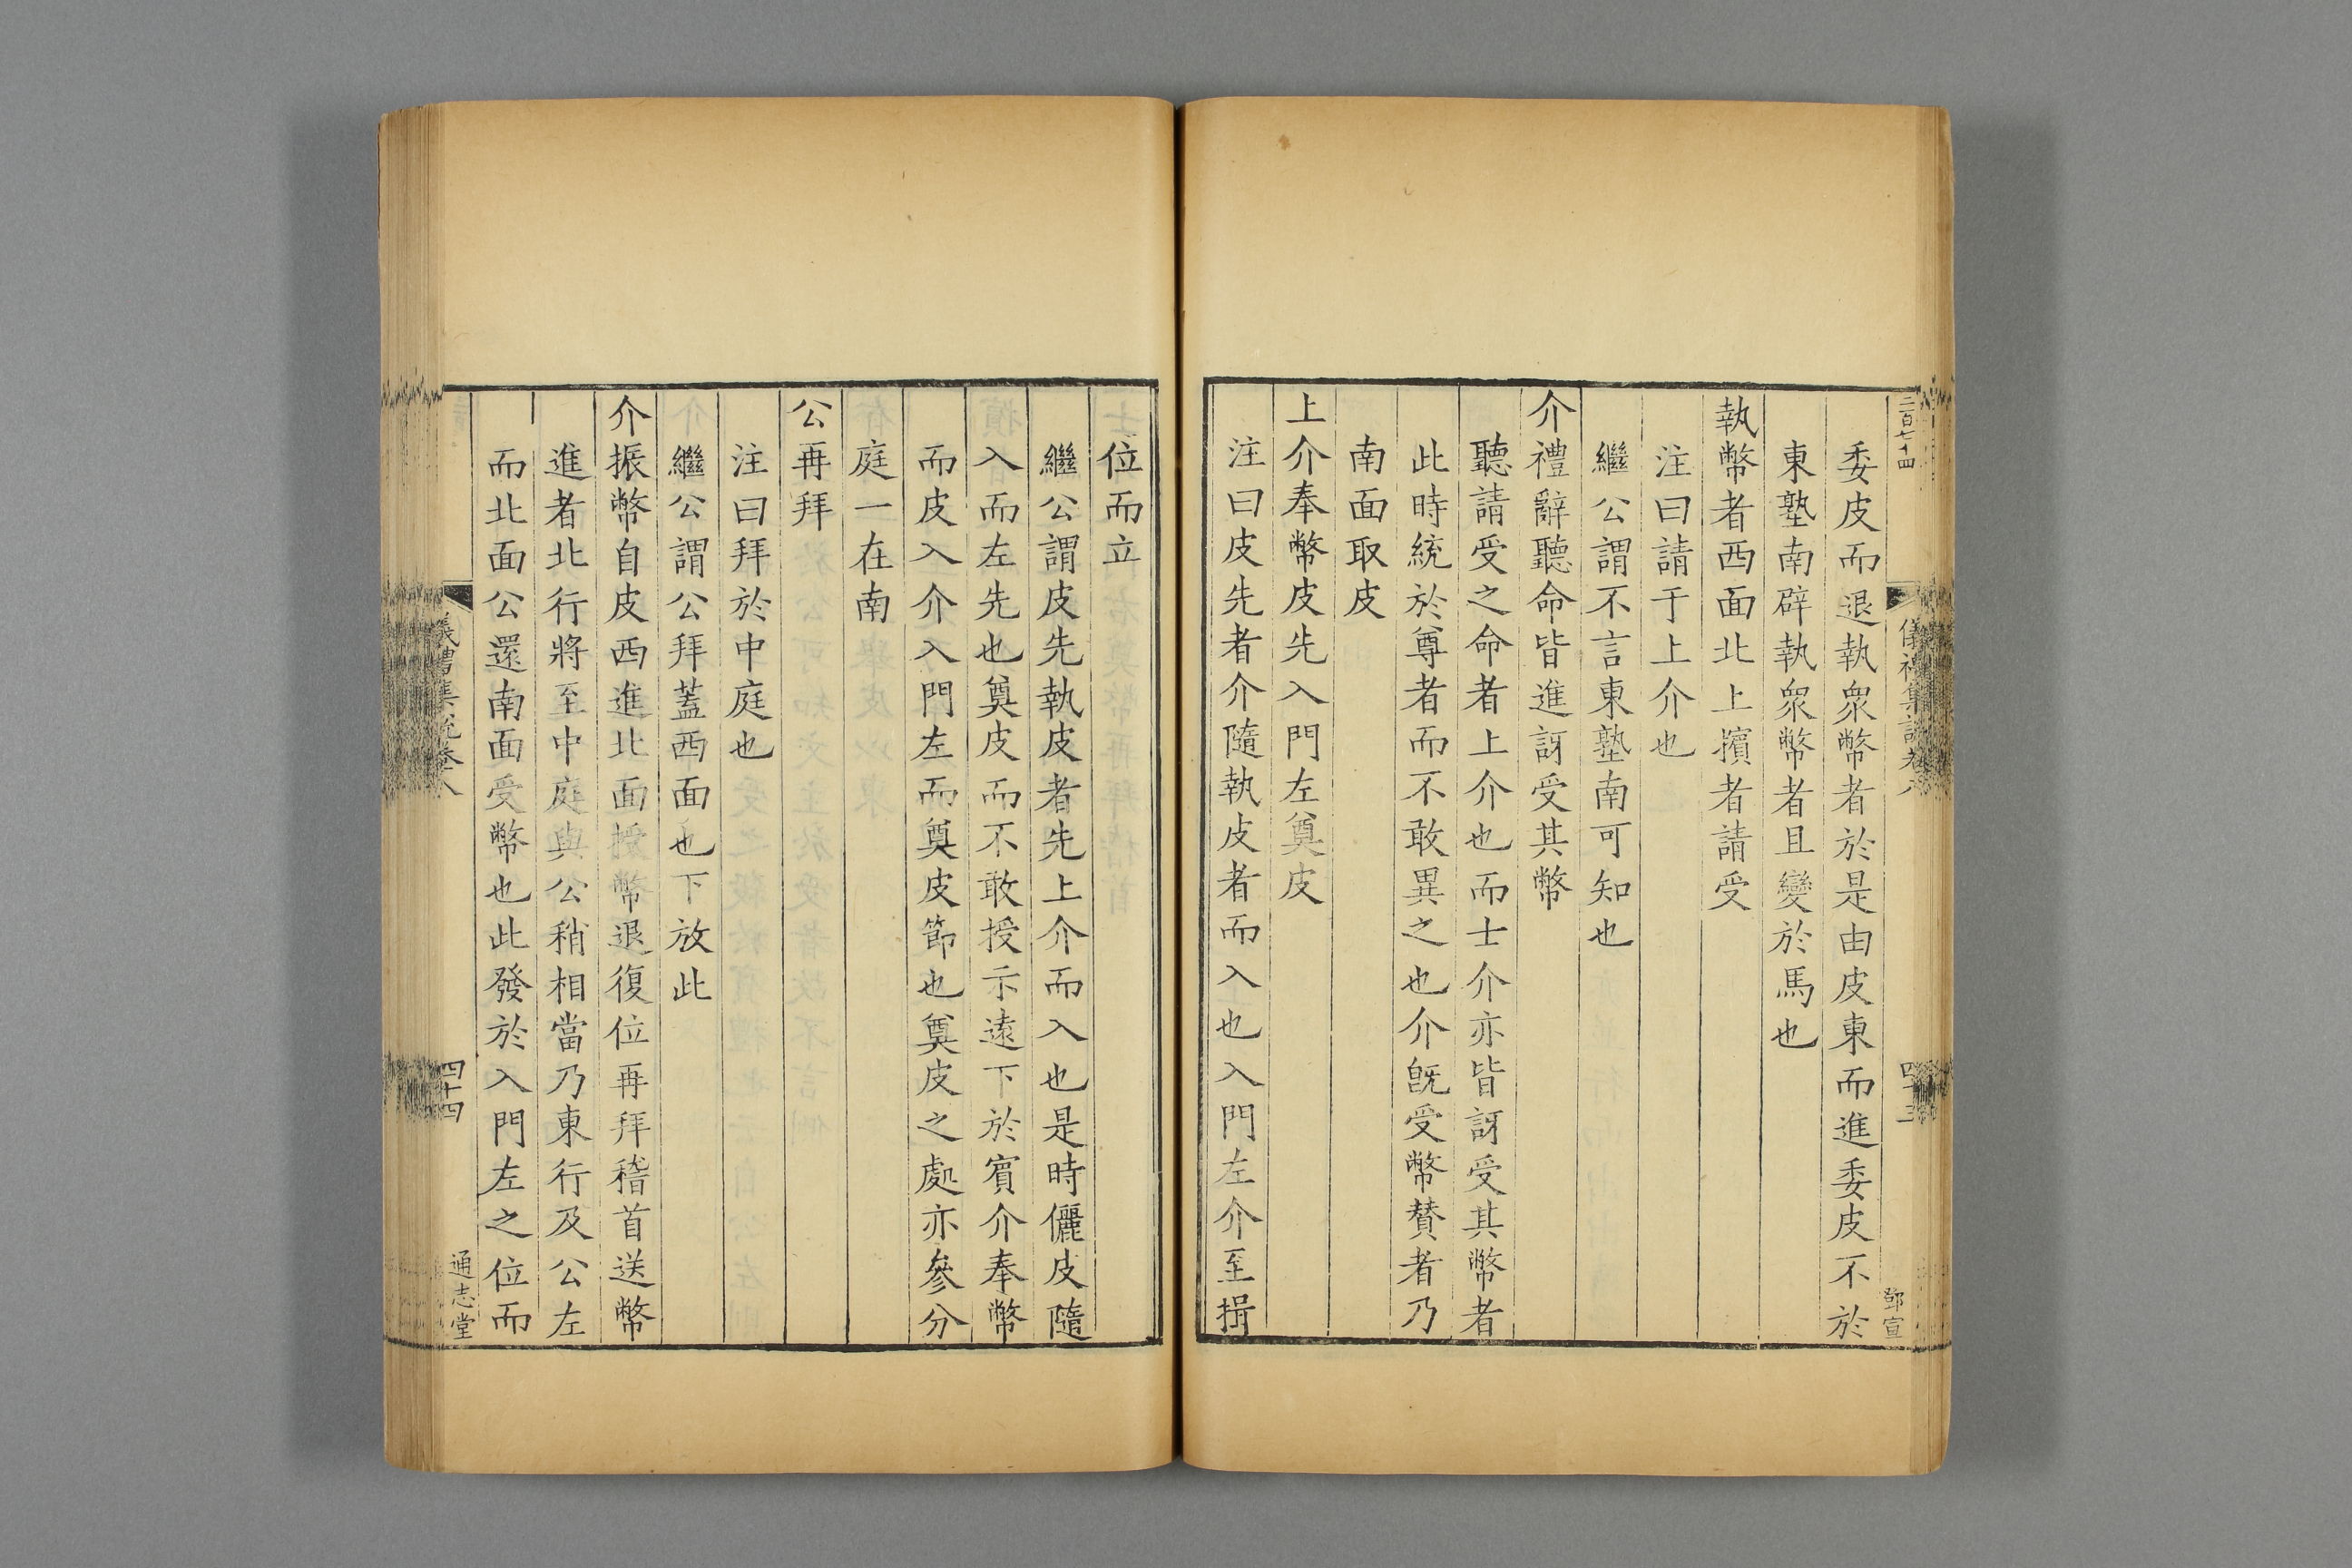 二百七十四
儀禮集說卷八
鄧宣
委皮而退執衆幣者於是由皮東而進委皮不於
東塾南辟執衆幣者且變於馬也
執幣者西面北上擯者請受
注曰請于上介也
繼公謂不言東塾南可知也
介禮辭聽命皆進訝受其幣
聽請受之命者上介也而士介亦皆訝受其幣者
此時統於尊者而不敢異之也介旣受幣贊者乃
南面取皮
上介奉幣皮先入門左奠皮
注曰皮先者介隨執皮者而入也入門左介至揖
位而立
繼公謂皮先執皮者先上介而入也是時儷皮隨
入而左先也奠皮而不敢授示遠下於賓介奉幣
而皮入介入門左而奠皮節也奠皮之處亦參分
庭一在南
公再拜
注曰拜於中庭也
繼公謂公拜蓋西面也下放此
介振幣自皮西進北面授幣退復位再拜稽首送幣
進者北行將至中庭與公稍相當乃東行及公左
而北面公還南面受幣也此發於入門左之位而
四十四
通志堂